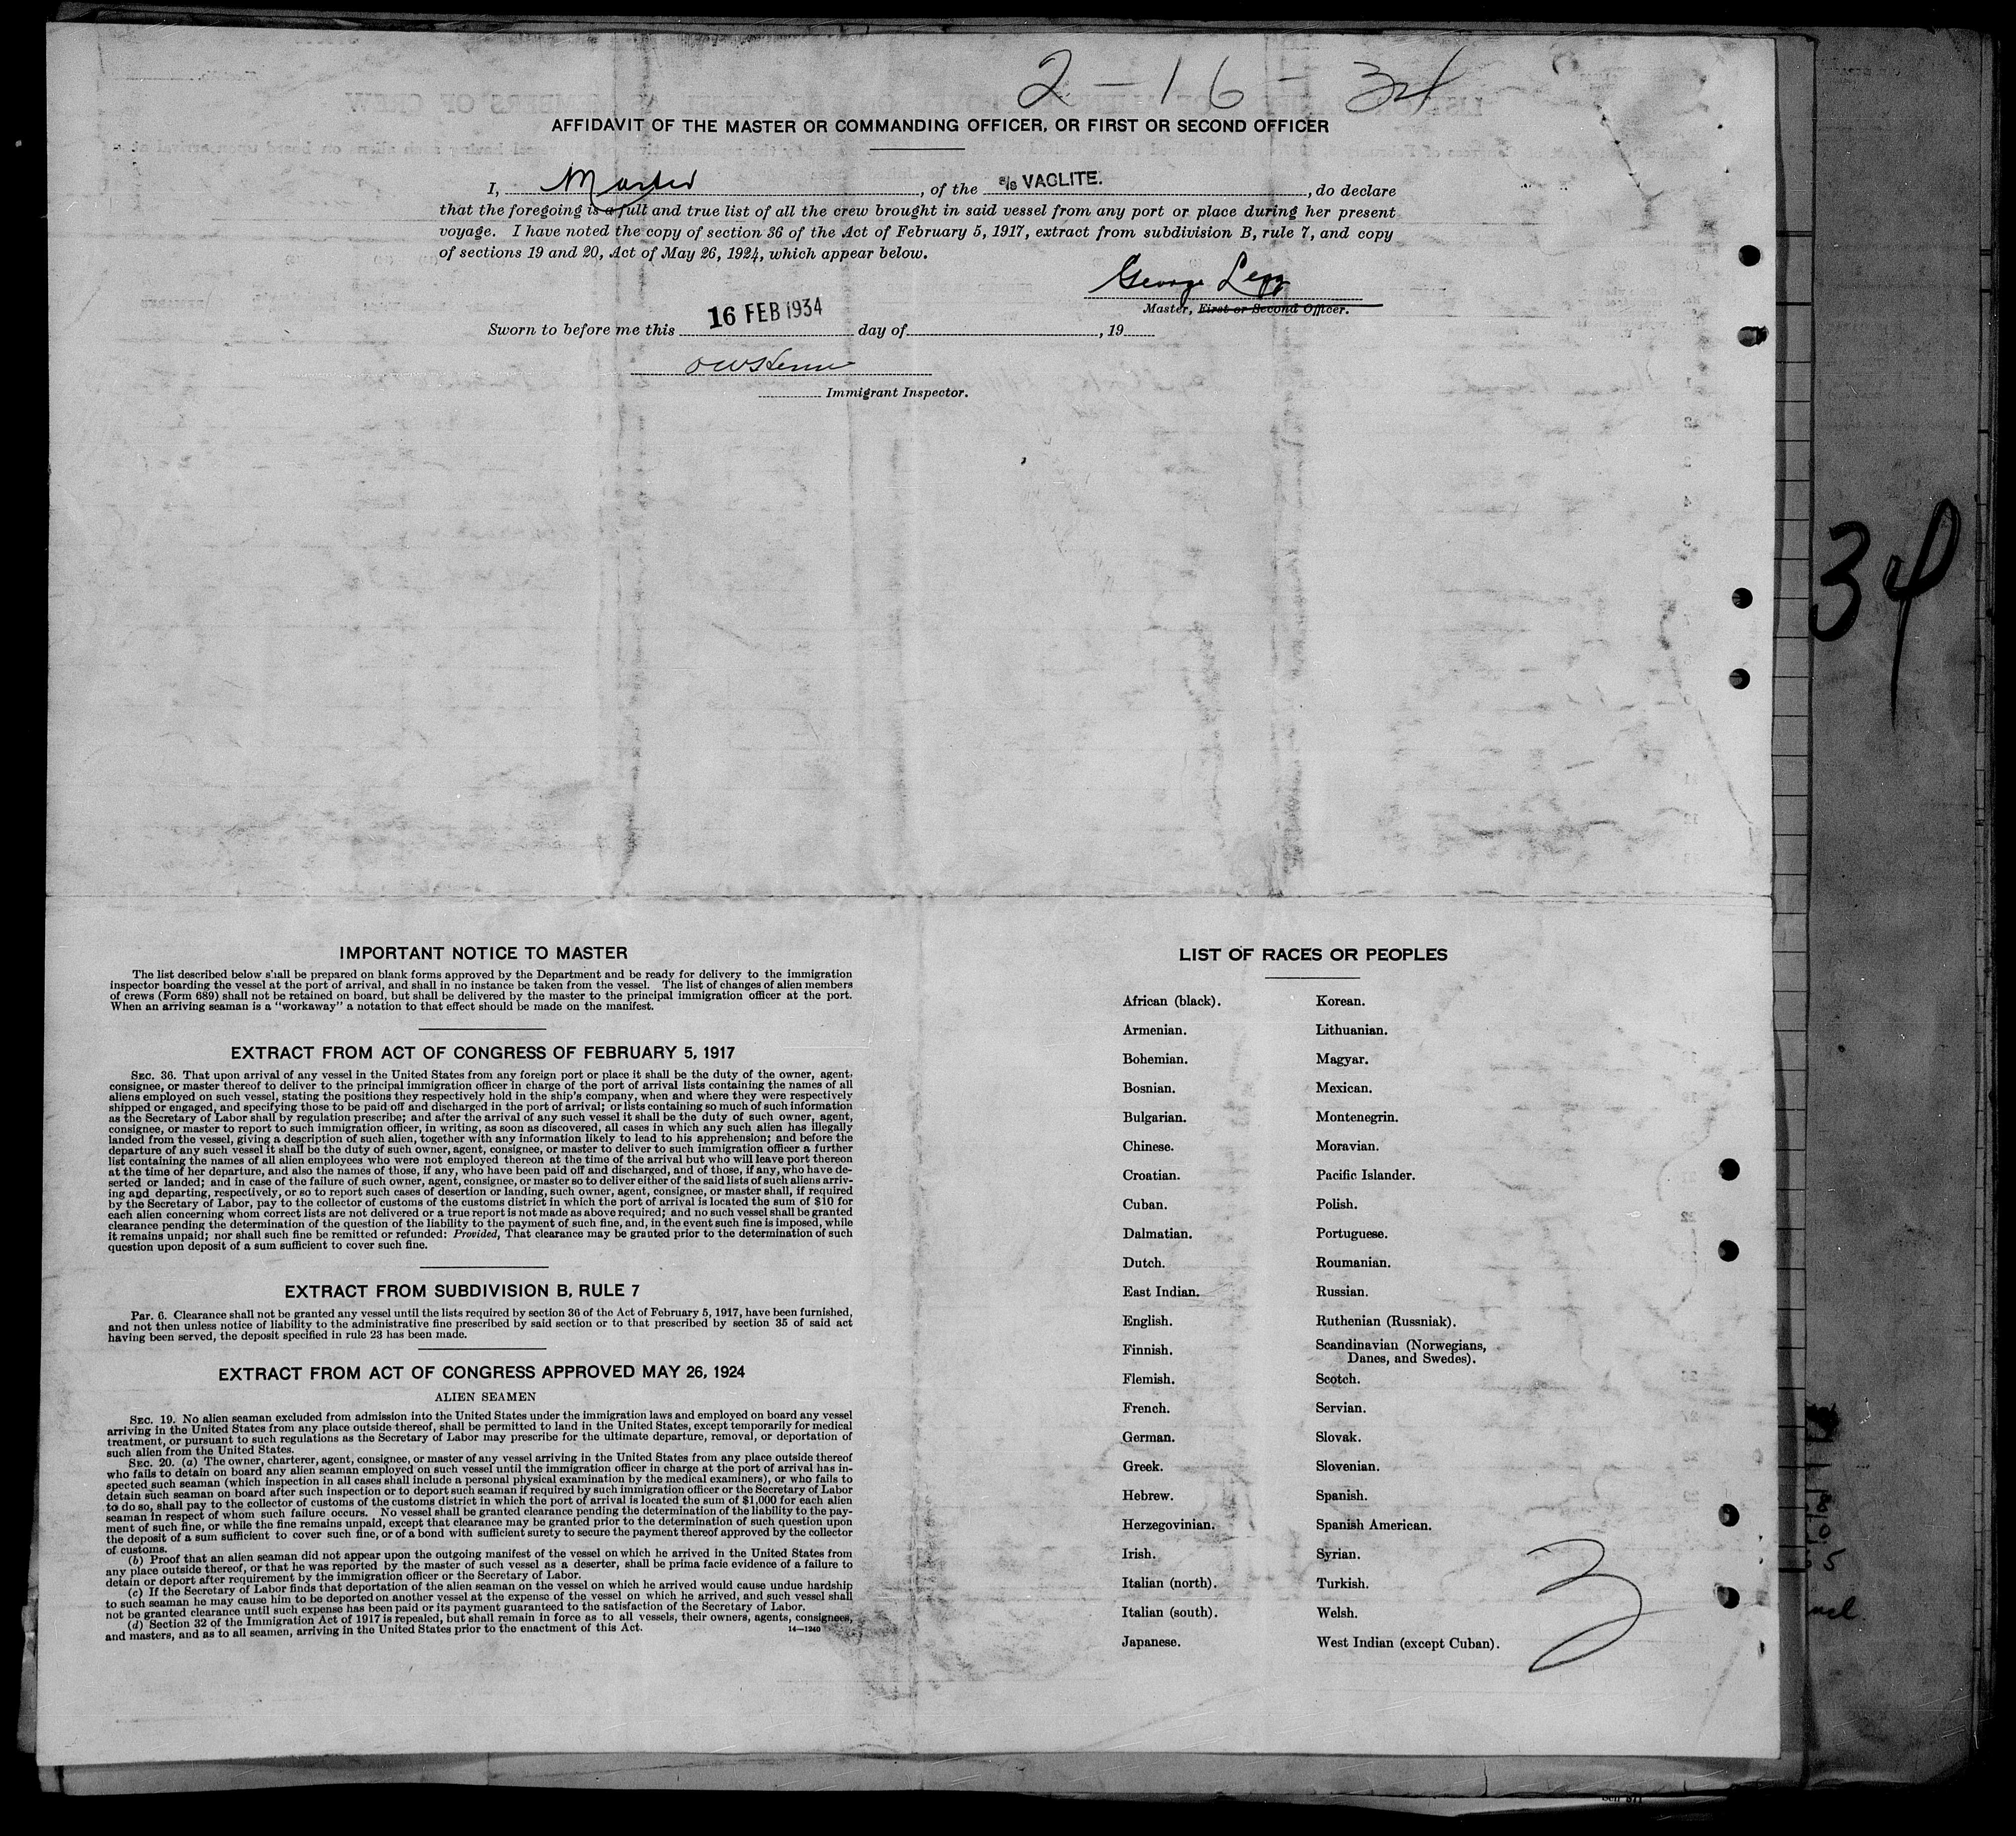 2-16-34
AFFIDAVIT OF THE MASTER OR COMMANDING OFFICER, OR FIRST OR SECOND OFFICER
I, Master, of the s/s VACLITE., do declare
that the foregoing is a full and true list of all the crew brought in said vessel from any port or place during her present
voyage. I have noted the copy of section 36 of the Act of February 5, 1917, extract from subdivision B, rule 7, and copy
of sections 19 and 20, Act of May 26, 1924, which appear below.
George
Master, First or Second Officer.
Sworn to before me this 16 FEB 1934 day of, 19
Immigrant Inspector.
34
IMPORTANT NOTICE TO MASTER
The list described below shall be prepared on blank forms approved by the Department and be ready for delivery to the immigration
inspector boarding the vessel at the port of arrival, and shall in no instance be taken from the vessel. The list of changes of alien members
of crews (Form 689) shall not be retained on board, but shall be delivered by the master to the principal immigration officer at the port.
When an arriving seaman is a "workaway" a notation to that effect should be made on the manifest.
EXTRACT FROM ACT OF CONGRESS OF FEBRUARY 5, 1917
SEC. 36. That upon arrival of any vessel in the United States from any foreign port or place it shall be the duty of the owner, agent,
consignee, or master thereof to deliver to the principal immigration officer in charge of the port of arrival lists containing the names of all
aliens employed on such vessel, stating the positions they respectively hold in the ship's company, when and where they were respectively
shipped or engaged, and specifying those to be paid off and discharged in the port of arrival; or lists containing so much of such information
as the Secretary of Labor shall by regulation prescribe; and after the arrival of any such vessel it shall be the duty of such owner, agent,
consignee, or master to report to such immigration officer, in writing, as soon as discovered, all cases in which any such alien has illegally
landed from the vessel, giving a description of such alien, together with any information likely to lead to his apprehension; and before the
departure of any such vessel it shall be the duty of such owner, agent, consignee, or master to deliver to such immigration officer a further
list containing the names of all alien employees who were not employed thereon at the time of the arrival but who will leave port thereon
at the time of her departure, and also the names of those, if any, who have been paid off and discharged, and of those, if any, who have de-
serted or landed; and in case of the failure of such owner, agent, consignee, or master so to deliver either of the said lists of such aliens arriv-
ing and departing, respectively, or so to report such cases of desertion or landing, such owner, agent, consignee, or master shall, if required
by the Secretary of Labor, pay to the collector of customs of the customs district in which the port of arrival is located the sum of $10 for
each alien concerning whom correct lists are not delivered or a true report is not made as above required; and no such vessel shall be granted
clearance pending the determination of the question of the liability to the payment of such fine, and, in the event such fine is imposed, while
it remains unpaid; nor shall such fine be remitted or refunded: Provided, That clearance may be granted prior to the determination of such
question upon deposit of a sum sufficient to cover such fine.
EXTRACT FROM SUBDIVISION B, RULE 7
Par. 6. Clearance shall not be granted any vessel until the lists required by section 36 of the Act of February 5, 1917, have been furnished,
and not then unless notice of liability to the administrative fine prescribed by said section or to that prescribed by section 35 of said act
having been served, the deposit specified in rule 23 has been made.
EXTRACT FROM ACT OF CONGRESS APPROVED MAY 26, 1924
ALIEN SEAMEN
SEC. 19. No alien seaman excluded from admission into the United States under the immigration laws and employed on board any vessel
arriving in the United States from any place outside thereof, shall be permitted to land in the United States, except temporarily for medical
treatment, or pursuant to such regulations as the Secretary of Labor may prescribe for the ultimate departure, removal, or deportation of
such alien from the United States.
SEC. 20. (a) The owner, charterer, agent, consignee, or master of any vessel arriving in the United States from any place outside thereof
who fails to detain on board any alien seaman employed on such vessel until the immigration officer in charge at the port of arrival has in-
spected such seaman (which inspection in all cases shall include a personal physical examination by the medical examiners), or who fails to
detain such seaman on board after such inspection or to deport such seaman if required by such immigration officer or the Secretary of Labor
to do so, shall pay to the collector of customs of the customs district in which the port of arrival is located the sum of $1,000 for each alien
seaman in respect of whom such failure occurs. No vessel shall be granted clearance pending the determination of the liability to the pay-
ment of such fine, or while the fine remains unpaid, except that clearance may be granted prior to the determination of such question upon
the deposit of a sum sufficient to cover such fine, or of a bond with sufficient surety to secure the payment thereof approved by the collector
of customs.
(b) Proof that an alien seaman did not appear upon the outgoing manifest of the vessel on which he arrived in the United States from
any place outside thereof, or that he was reported by the master of such vessel as a deserter, shall be prima facie evidence of a failure to
detain or deport after requirement by the immigration officer or the Secretary of Labor.
(c) If the Secretary of Labor finds that deportation of the alien seaman on the vessel on which he arrived would cause undue hardship
to such seaman he may cause him to be deported on another vessel at the expense of the vessel on which he arrived, and such vessel shall
not be granted clearance until such expense has been paid or its payment guaranteed to the satisfaction of the Secretary of Labor.
(d) Section 32 of the Immigration Act of 1917 is repealed, but shall remain in force as to all vessels, their owners, agents, consignees,
and masters, and as to all seamen, arriving in the United States prior to the enactment of this Act.
14—1240
LIST OF RACES OR PEOPLES
African (black). Korean.
Armenian. Lithuanian.
Bohemian. Magyar.
Bosnian. Mexican.
Bulgarian. Montenegrin.
Chinese. Moravian.
Croatian. Pacific Islander.
Cuban. Polish.
Dalmatian. Portuguese.
Dutch. Roumanian.
East Indian. Russian.
English. Ruthenian (Russniak).
Finnish. Scandinavian (Norwegians,
Danes, and Swedes).
Flemish. Scotch.
French. Servian.
German. Slovak.
Greek. Slovenian.
Hebrew. Spanish.
Herzegovinian. Spanish American.
Irish. Syrian.
Italian (north). Turkish.
Italian (south). Welsh.
Japanese. West Indian (except Cuban).
3